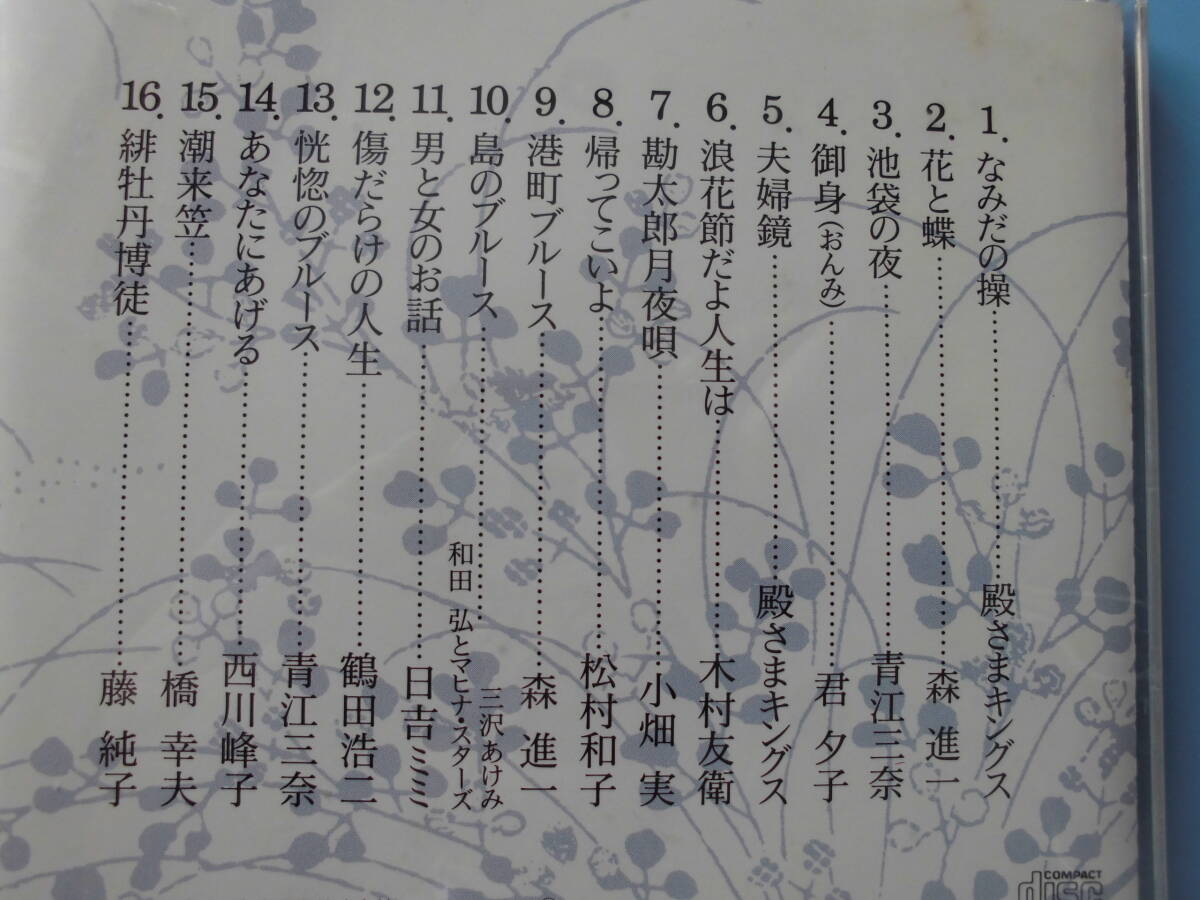 1. なみだの操……………殿さまキングス
2. 花と蝶……………森 進一
3. 池袋の夜……………青江三奈
4. 御身(おんみ)……………君 夕子
5. 夫婦鏡……………殿さまキングス
6. 浪花節だよ人生は……………木村友衛
7. 勘太郎月夜唄……………小畑 実
8. 帰ってこいよ……………松村和子
9. 港町ブルース……………森 進一
10. 島のブルース……………三沢あけみ
和田 弘とマヒナ・スターズ
11. 男と女のお話……………日吉ミミ
12. 傷だらけの人生……………鶴田浩二
13. 恍惚のブルース……………青江三奈
14. あなたにあげる……………西川峰子
15. 潮来笠……………橋 幸夫
16. 緋牡丹博徒……………藤 純子
COMPACT
disc